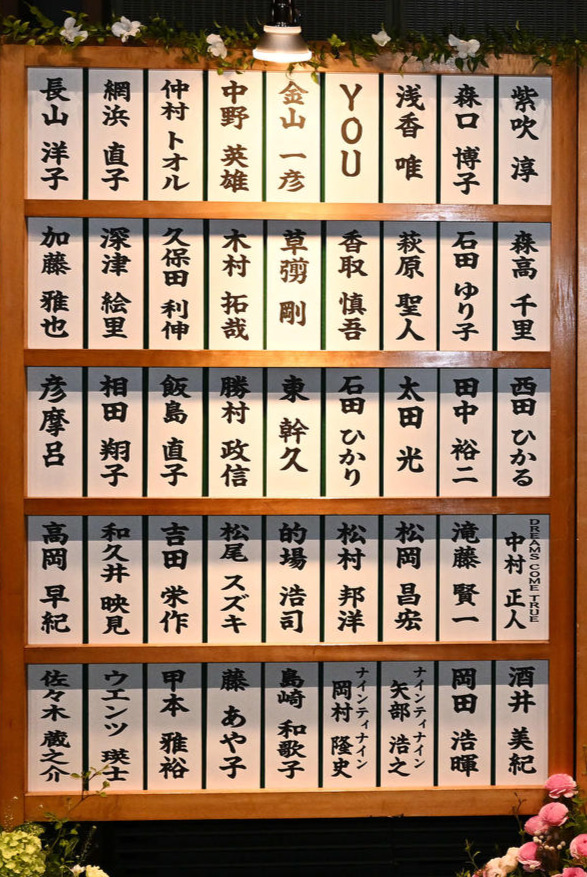 紫吹 淳
森口 博子
浅香 唯
YOU
金山 一彦
中野 英雄
仲村 トオル
網浜 直子
長山 洋子
森高 千里
石田 ゆり子
萩原 聖人
香取 慎吾
草彅 剛
木村 拓哉
久保田 利伸
深津 絵里
加藤 雅也
西田 ひかる
田中 裕二
太田 光
石田 ひかり
東 幹久
勝村 政信
飯島 直子
相田 翔子
彦摩呂
DREAMS COME TRUE
中村 正人
滝藤 賢一
松岡 昌宏
松村 邦洋
的場 浩司
松尾 スズキ
吉田 栄作
和久井 映見
高岡 早紀
酒井 美紀
岡田 浩暉
ナインティナイン
矢部 浩之
ナインティナイン
岡村 隆史
島崎 和歌子
藤 あや子
甲本 雅裕
ウエンツ 瑛士
佐々木 蔵之介